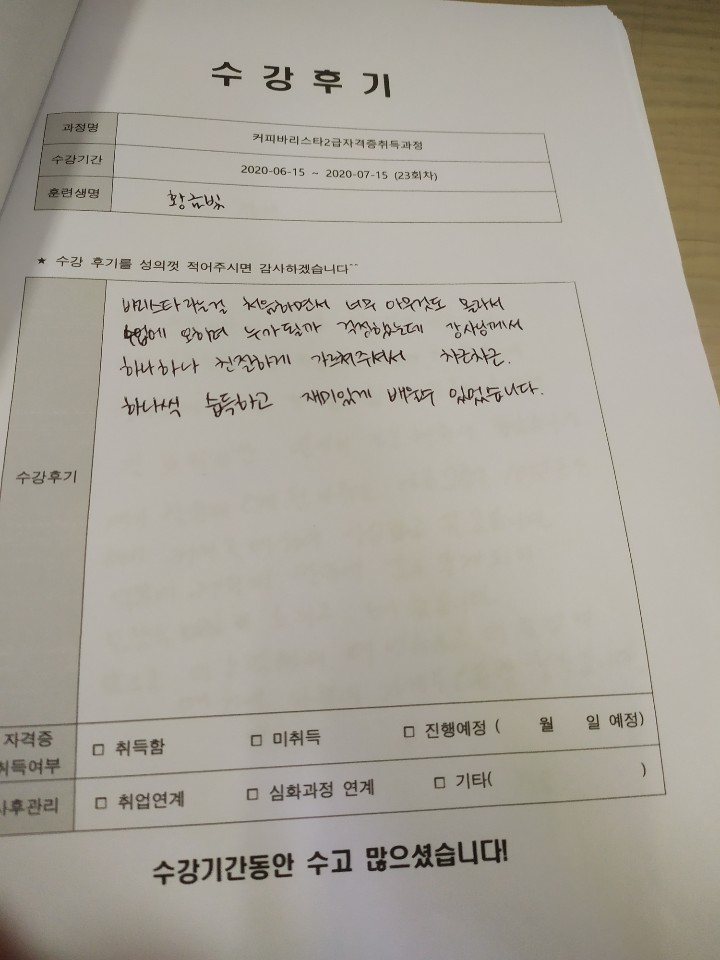 수 강 후 기
과정명 커피바리스타2급자격증취득과정
수강기간 2020-06-15 ~ 2020-07-15 (23회차)
훈련생명 황금빛
★ 수강 후기를 성의껏 적어주시면 감사하겠습니다^^
바리스타라는걸 처음하면서 너무 아무것도 몰라서
수업에 오하며 누가될까 걱정했는데 강사님께서
하나하나 친절하게 가르쳐주셔서 차근차근.
하나씩 습득하고 재미있게 배울수 있었습니다.
수강후기
자격증 취득여부 □ 취득함 □ 미취득 □ 진행예정 ( 월 일 예정)
사후관리 □ 취업연계 □ 심화과정 연계 □ 기타( )
수강기간동안 수고 많으셨습니다!